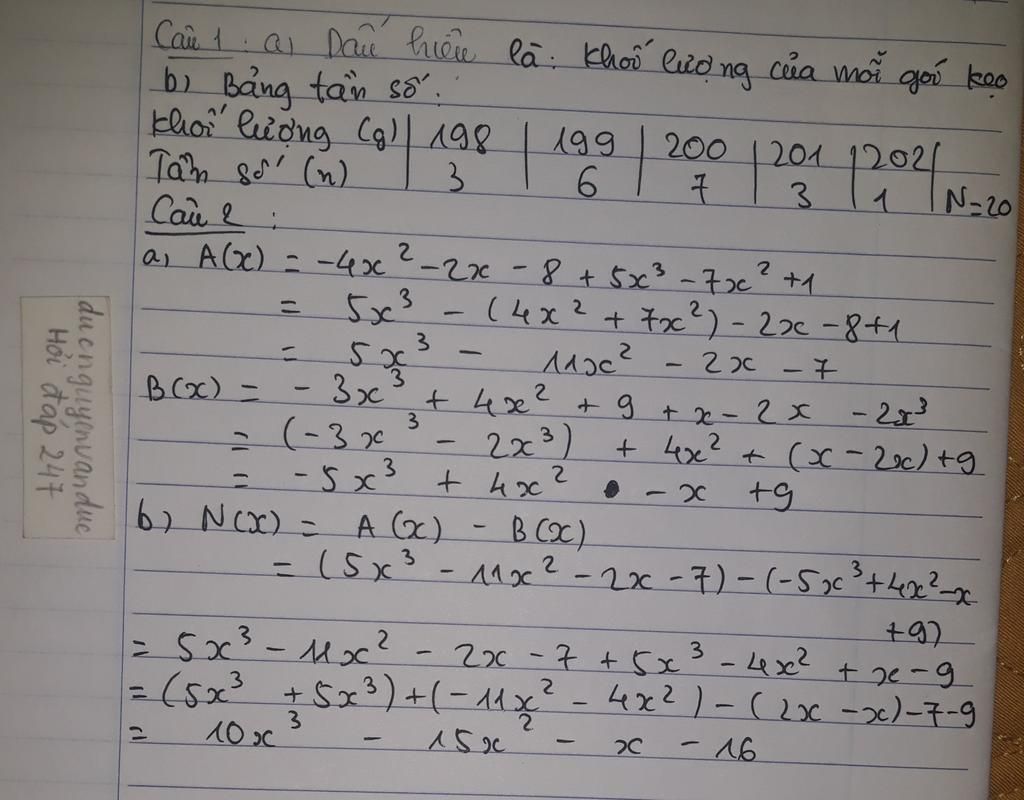 Câu 1: a) Dấu hiệu là: Khối lượng của mỗi gói kẹo
b) Bảng tần số:
Khối lượng (g) | 198 | 199 | 200 | 201 | 202 |
Tần số (n) | 3 | 6 | 7 | 3 | 1 | N=20
Câu 2:
a) A(x) = -4x² - 2x - 8 + 5x³ - 7x² + 1
= 5x³ - (4x² + 7x²) - 2x - 8 + 1
= 5x³ - 11x² - 2x - 7
B(x) = -3x³ + 4x² + 9 + x - 2x - 2x³
= (-3x³ - 2x³) + 4x² + (x - 2x) + 9
= -5x³ + 4x² - x + 9
b) N(x) = A(x) - B(x)
= (5x³ - 11x² - 2x - 7) - (-5x³ + 4x² - x
+ 9)
= 5x³ - 11x² - 2x - 7 + 5x³ - 4x² + x - 9
= (5x³ + 5x³) + (-11x² - 4x²) - (2x - x) - 7 - 9
= 10x³ - 15x² - x - 16
ducnguyenvanduc
Hỏi đáp 247